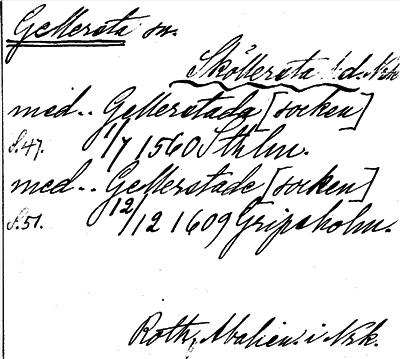 Gellersta sn.
Sköllersta hd. Nke
med.. Gellerstada [socken]
s. 47. 1/7 1560 Sthlm.
med.. Gellerstade [socken]
s. 51. 12/12 1609 Gripsholm.
Roth, Abalien. i Nrk.